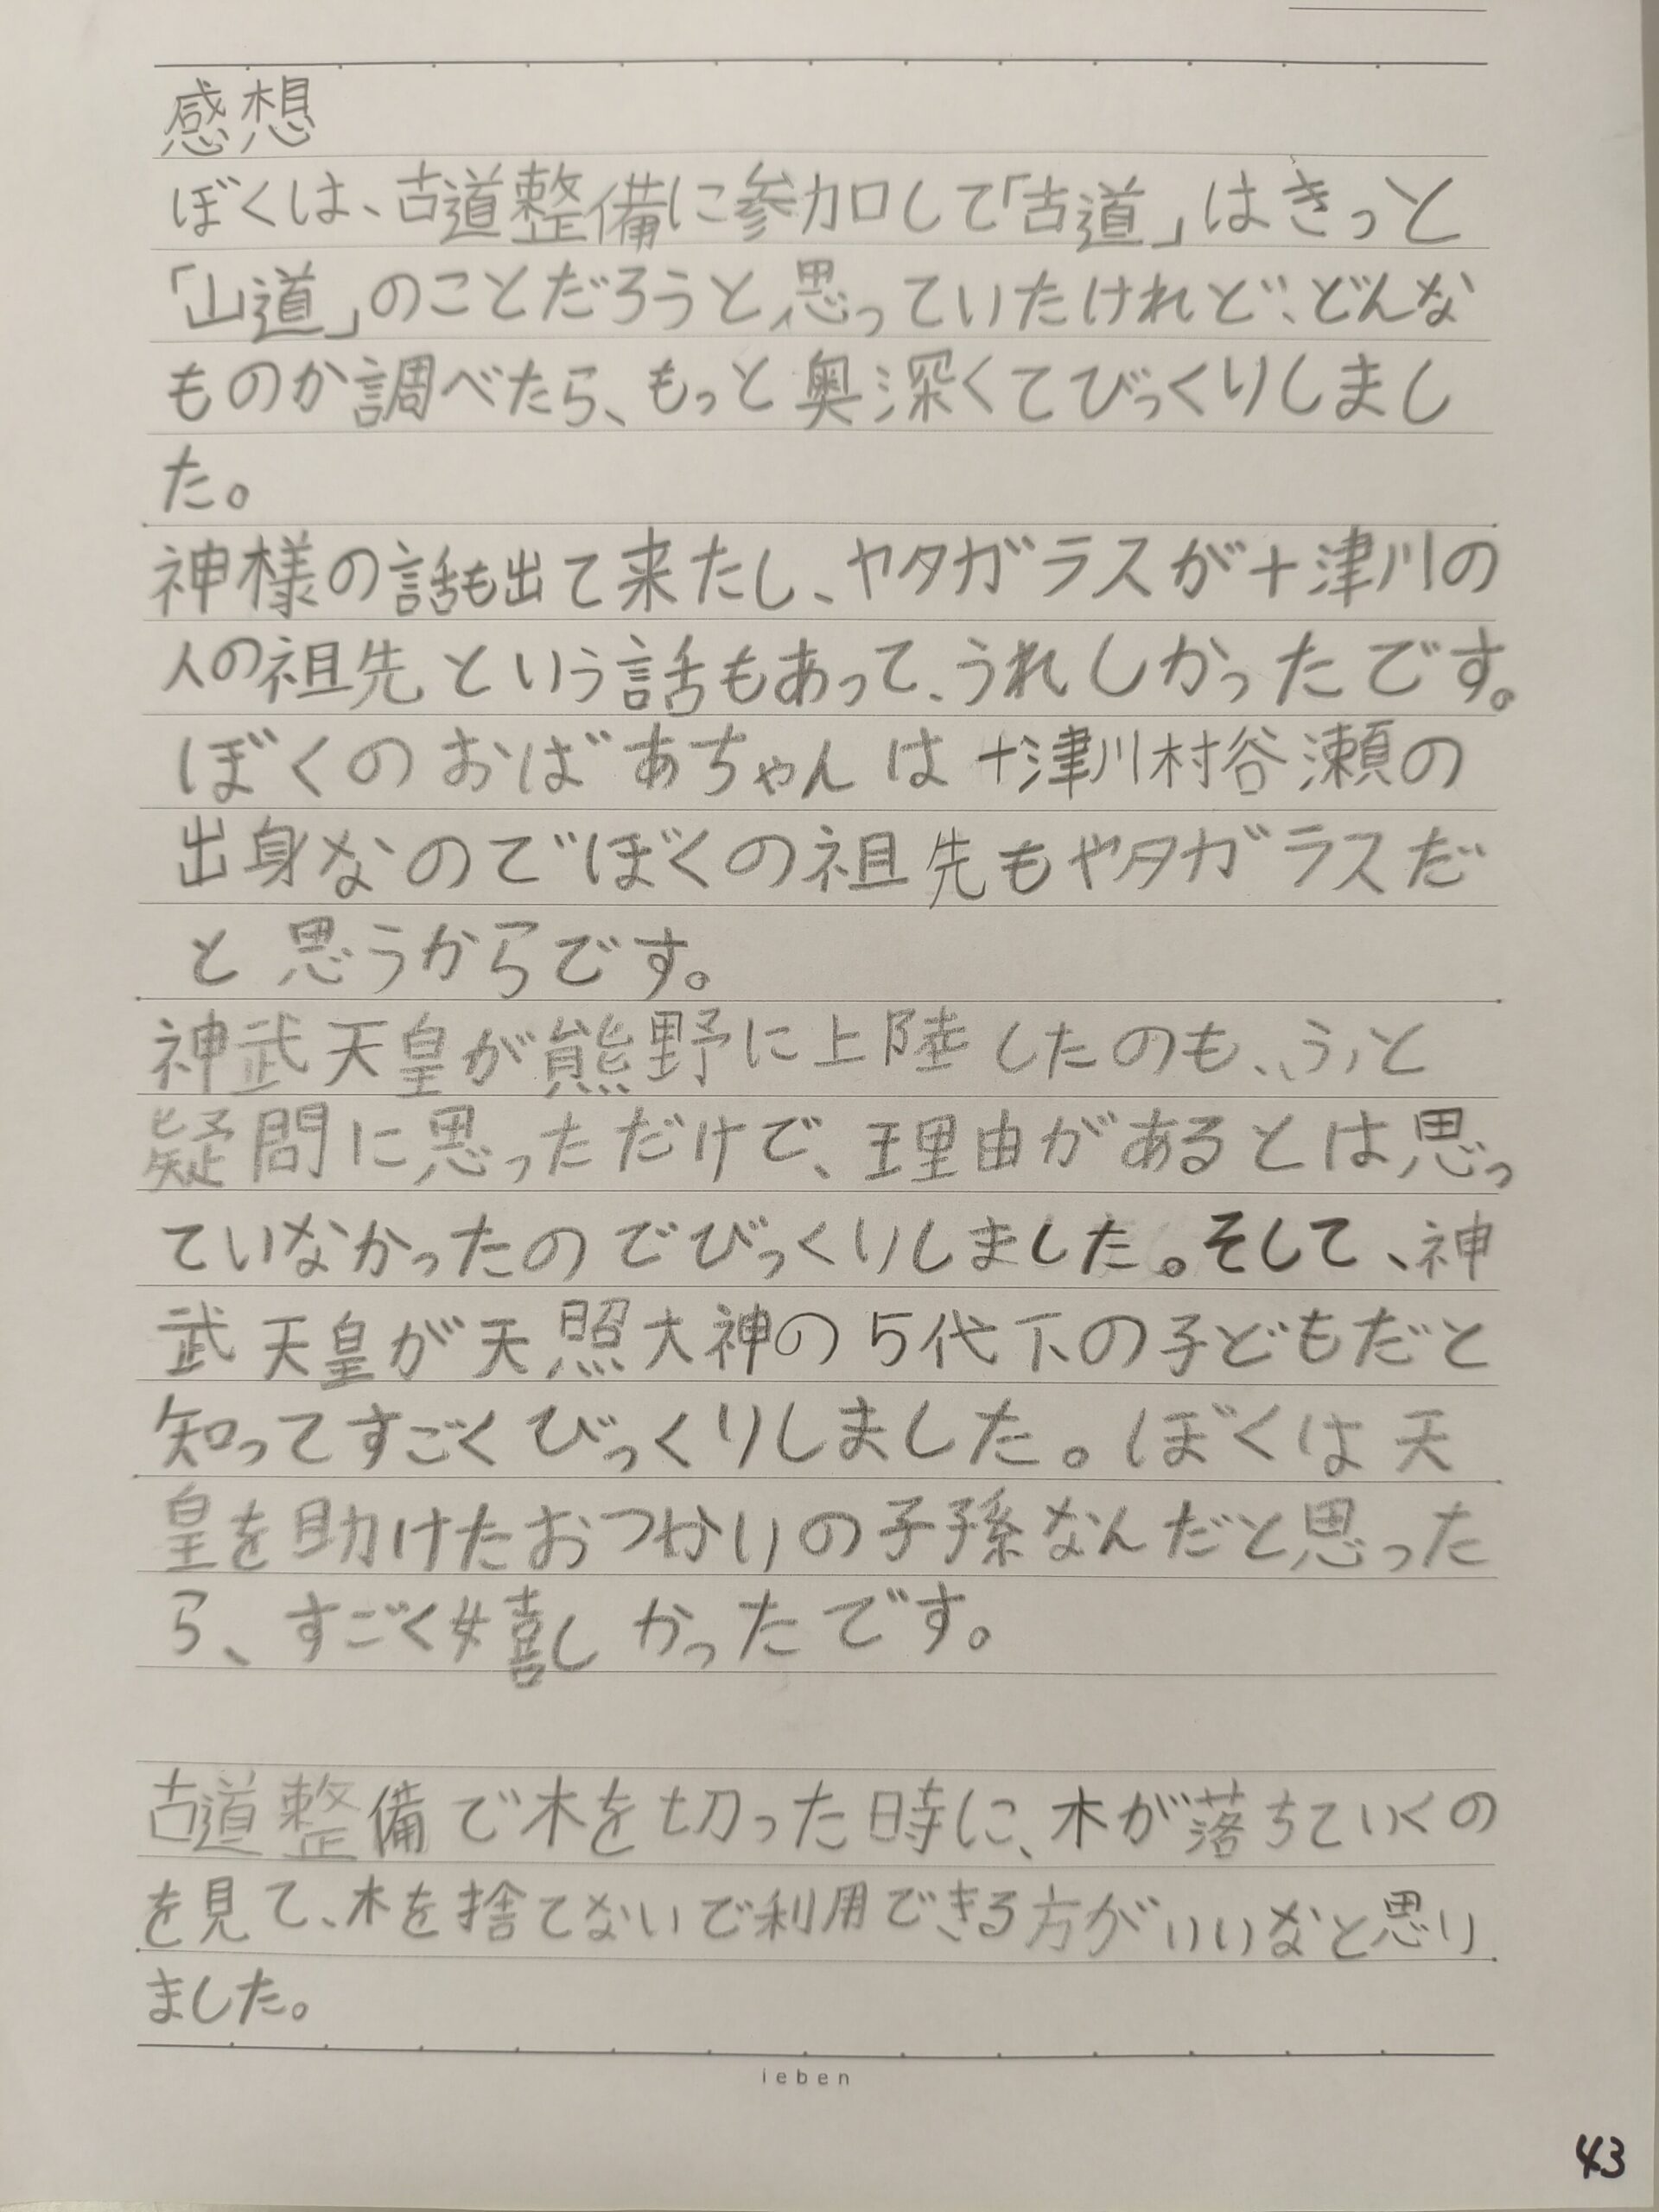 感想
ぼくは、古道整備に参加して「古道」はきっと
「山道」のことだろうと思っていたけれど、どんな
ものか調べたら、もっと奥深くてびっくりしまし
た。
神様の話も出て来たし、ヤタガラスが十津川の
人の祖先という話もあって、うれしかったです。
ぼくのおばあちゃんは十津川村谷瀬の
出身なのでぼくの祖先もヤタガラスだ
と思うからです。
神武天皇が熊野に上陸したのも、ふと
疑問に思っただけで、理由があるとは思っ
ていなかったのでびっくりしました。そして、神
武天皇が天照大神の5代下の子どもだと
知ってすごくびっくりしました。ぼくは天
皇を助けたおつかいの子孫なんだと思った
ら、すごく嬉しかったです。
古道整備で木を切った時に、木が落ちていくの
を見て、木を捨てないで利用できる方がいいなと思い
ました。
ieben
43